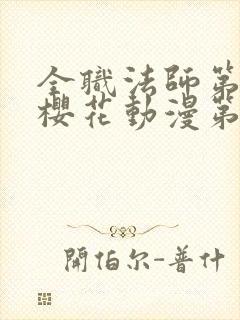 全職法師第
櫻花動漫第
開伯尔-普什